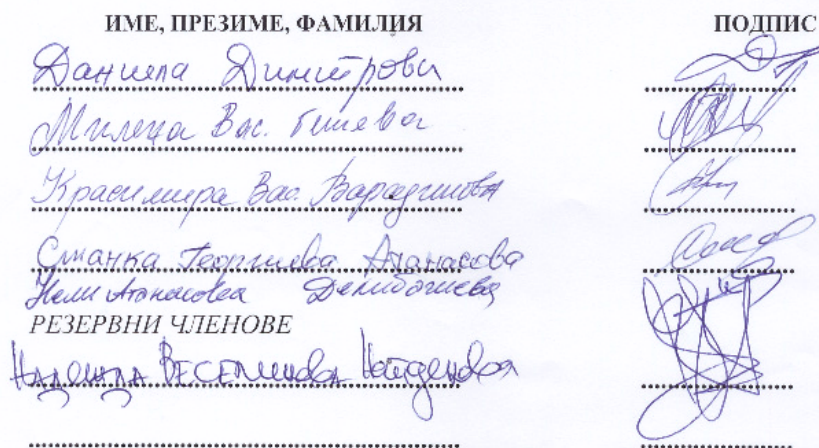 ИМЕ, ПРЕЗИМЕ, ФАМИЛИЯ ПОДПИС
Даниела Димитрова
Милена Вас.
Красимира Вас.
Станка Георгиева Атанасова
Нели Атанасова
РЕЗЕРВНИ ЧЛЕНОВЕ
Надежда Веселинова Найденова